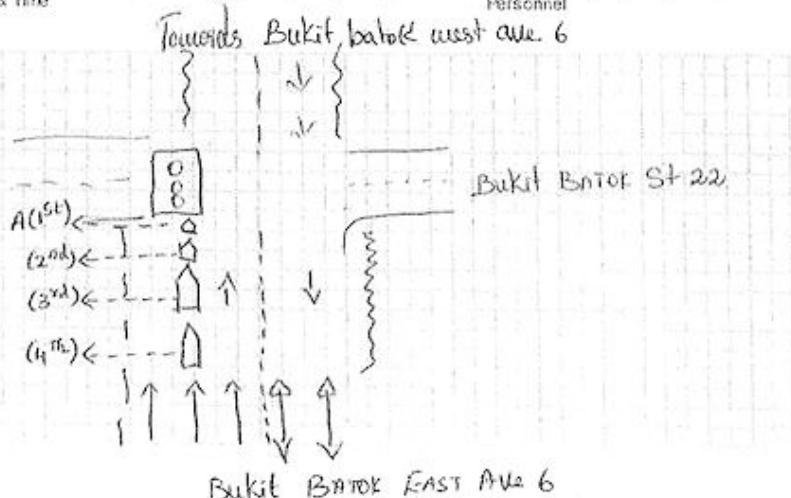 Time
Personnel
Towards Bukit batok west ave 6
Bukit BATOK St 22
A(1st)
(2nd)
(3rd)
(4th)
Bukit BATOK EAST AVE 6